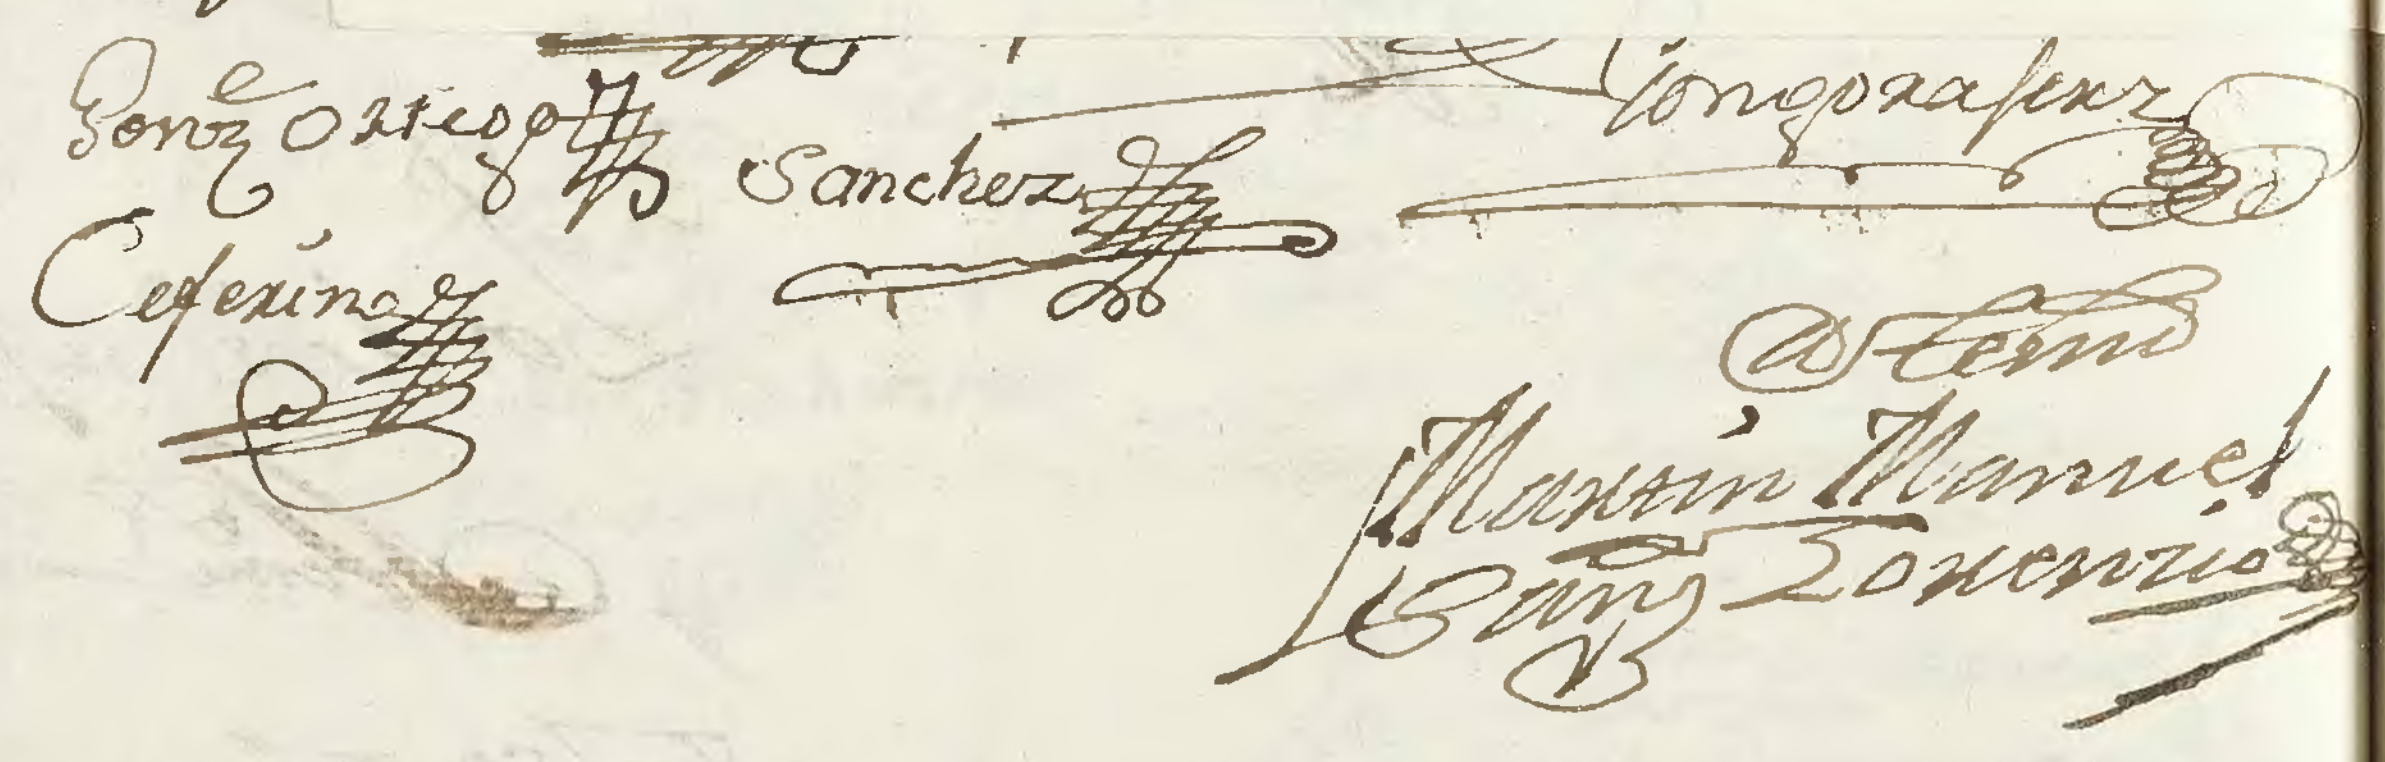 Gonz.e Ortega
Sanchez
Gongora
Ceferino
Ante mi
Martin Manuel
Sanz Lorenzio